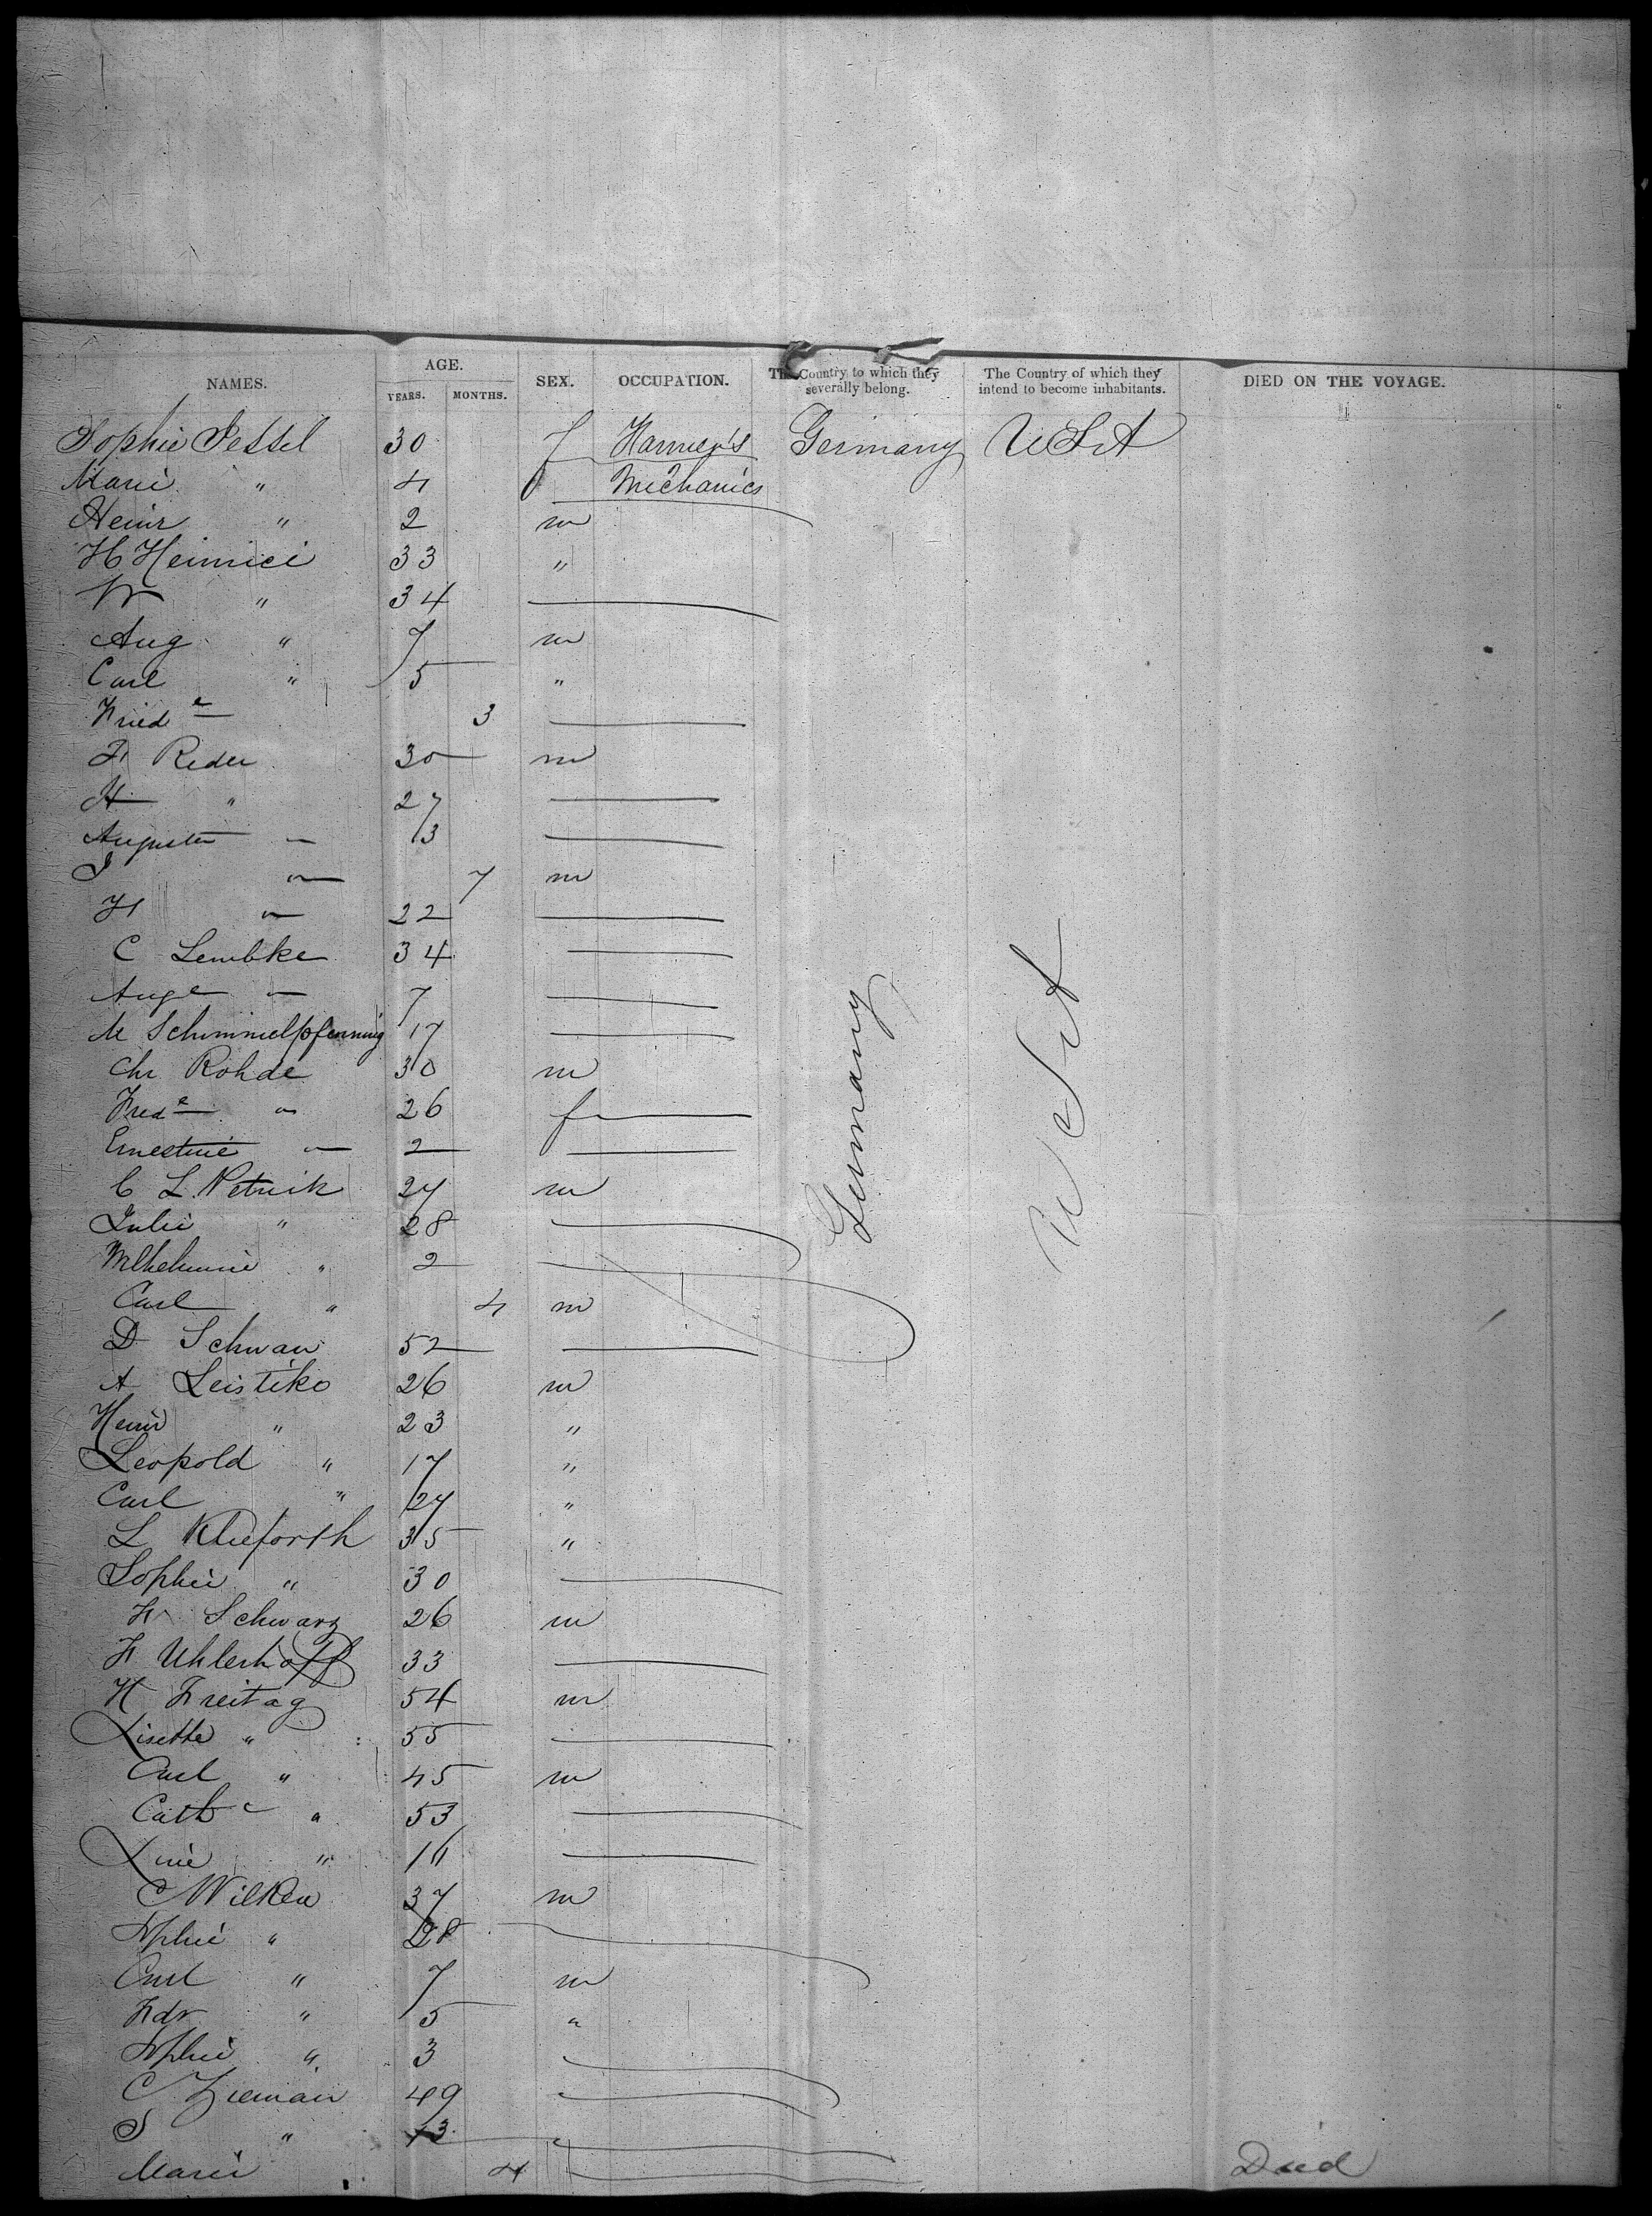 NAMES. AGE. YEARS. MONTHS. SEX. OCCUPATION. The Country to which they severally belong. The Country of which they intend to become inhabitants. DIED ON THE VOYAGE.
Sophie Jessel 30 f Farmers Germany USA
Marie " 4 f Mechanics
Heinr " 2 m
H Heinrici 33 "
W " 34
Aug " 7 m
Carl " 5 "
Fried e 3
F Reder 30 m
H " 27
Auguste " 3
J " 7 m
H " 22
C Lembke 34
Auge " 7
M Schimmelpfenning 17
Chr Rohde 30 m
Frede " 26 f
Ernestine " 2
C L Petrick 27 m
Julie " 28
Wilhelmine " 2
Carl " 4 m
Germany
USA
D Schwan 52
A Leistiko 26 m
Heinr " 23 "
Leopold " 17 "
Carl " 27 "
L Klueforth 35 "
Sophie " 30
F Schwarz 26 m
F Uhlerhoff 33
H Freitag 54 m
Lisette " 55
Carl " 45 m
Cath e " 53
Line " 16
C Wilken 37 m
Sophie " 28
Carl " 7 m
Fdr " 5 "
Sophie " 3
C Zieman 49
S "
Marie 4 Died